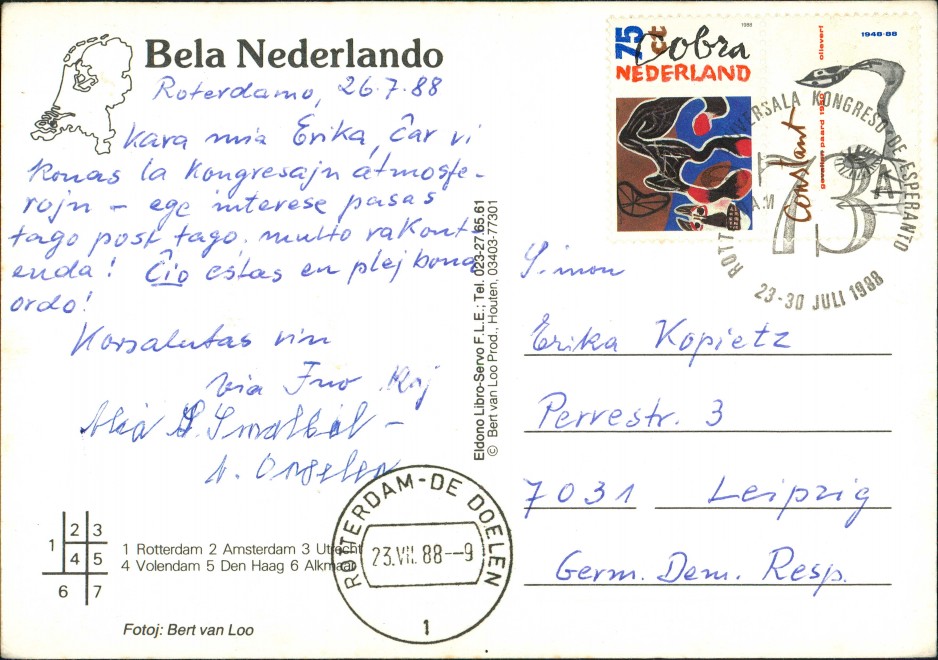 Bela Nederlando
Roterdamo, 26.7.88
Kara mia Erika, ĉar vi
konas la kongresajn atmosfe-
rojn – ege interese pasas
tago post tago. multo rakont-
enda! Ĉio estas en plej bona
ordo!
Korsalutas vin
via Ino Kaj
Eldono Libro-Servo F.L.E.; Tel. 023-27.65.61
© Bert van Loo Prod., Houten, 03403-77301
75 ct
Cobra
1988
NEDERLAND
Constant
gevallen paard 1950 olieverf
1948-88
UNIVERSALA KONGRESO DE ESPERANTO
73
23-30 JULI 1988
Simon
Erika Kopietz
Perrestr. 3
7031 Leipzig
Germ. Dem. Resp.
ROTTERDAM-DE DOELEN
23.VII.88--9
1
1 2 3 4 5 6 7
1 Rotterdam 2 Amsterdam 3 Utrecht
4 Volendam 5 Den Haag 6 Alkmaar
Fotoj: Bert van Loo